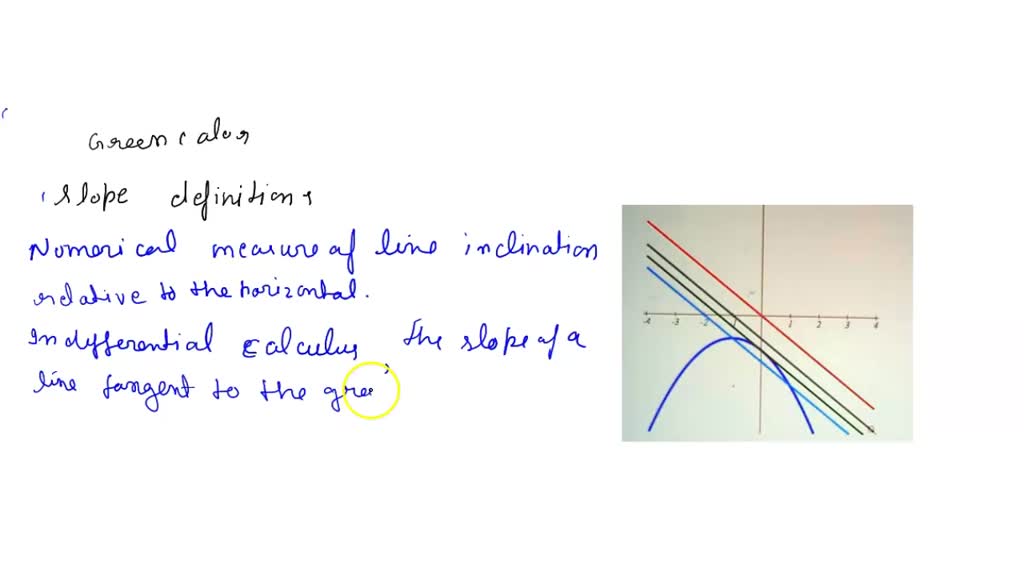 Green calor
slope definitions
Numerical measure of line inclination
relative to the horizontal.
In differential calculus, the slope of a
line tangent to the gree
-4 -3 -2 -1 1 2 3 4